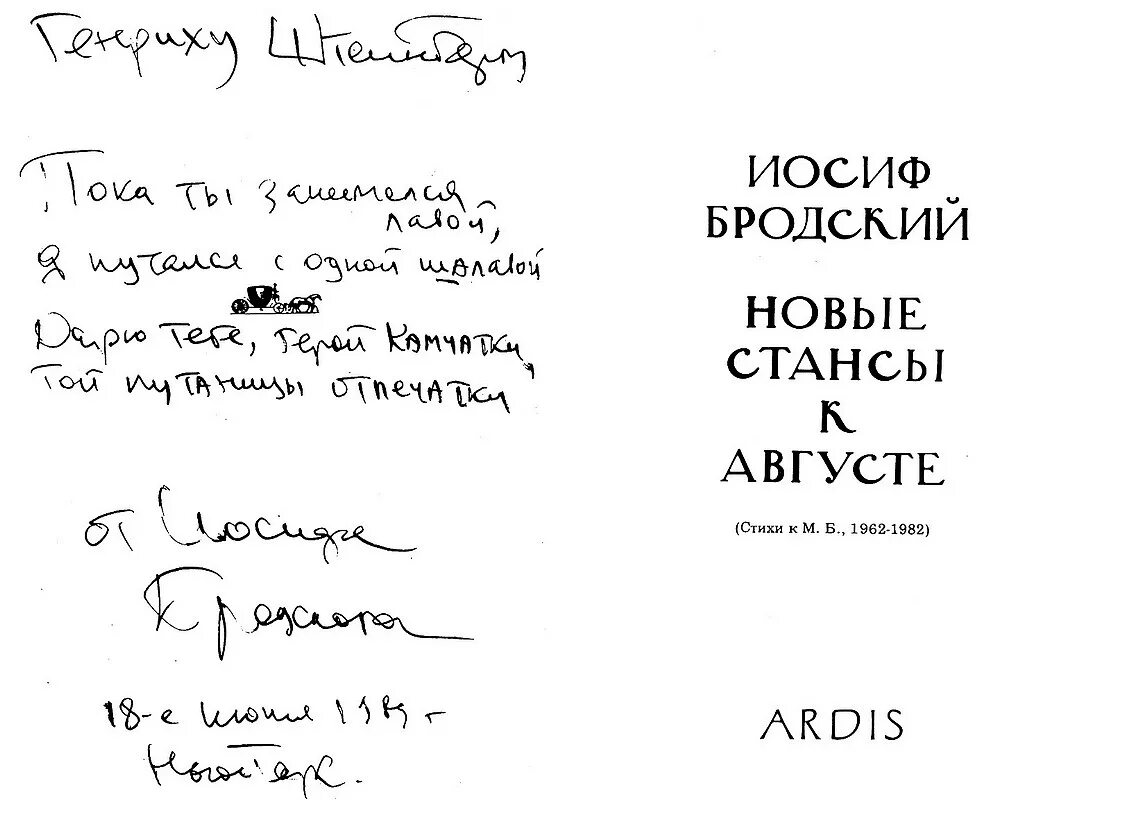 Генриху Штейнбергу
Пока ты занимался
лавой,
Я путался с одной шалавой
Дарю тебе, герой Камчатки,
той путаницы отпечатки
от Иосифа
Бродского
18-е июня 1989 г
Нью-Йорк.
ИОСИФ
БРОДСКИЙ
НОВЫЕ
СТАНСЫ
К
АВГУСТЕ
(Стихи к М. Б., 1962-1982)
ARDIS